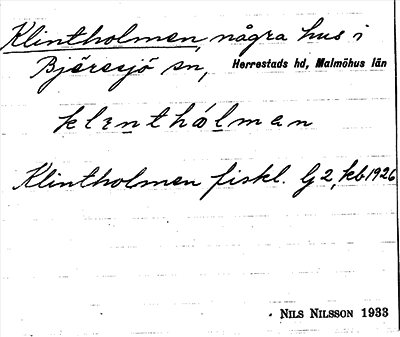 Klintholmen, några hus i
Bjäresjö sn, Herrestads hd, Malmöhus län
klɪnthólman
Klintholmen fiskl. G2, kb 1926
NILS NILSSON 1933